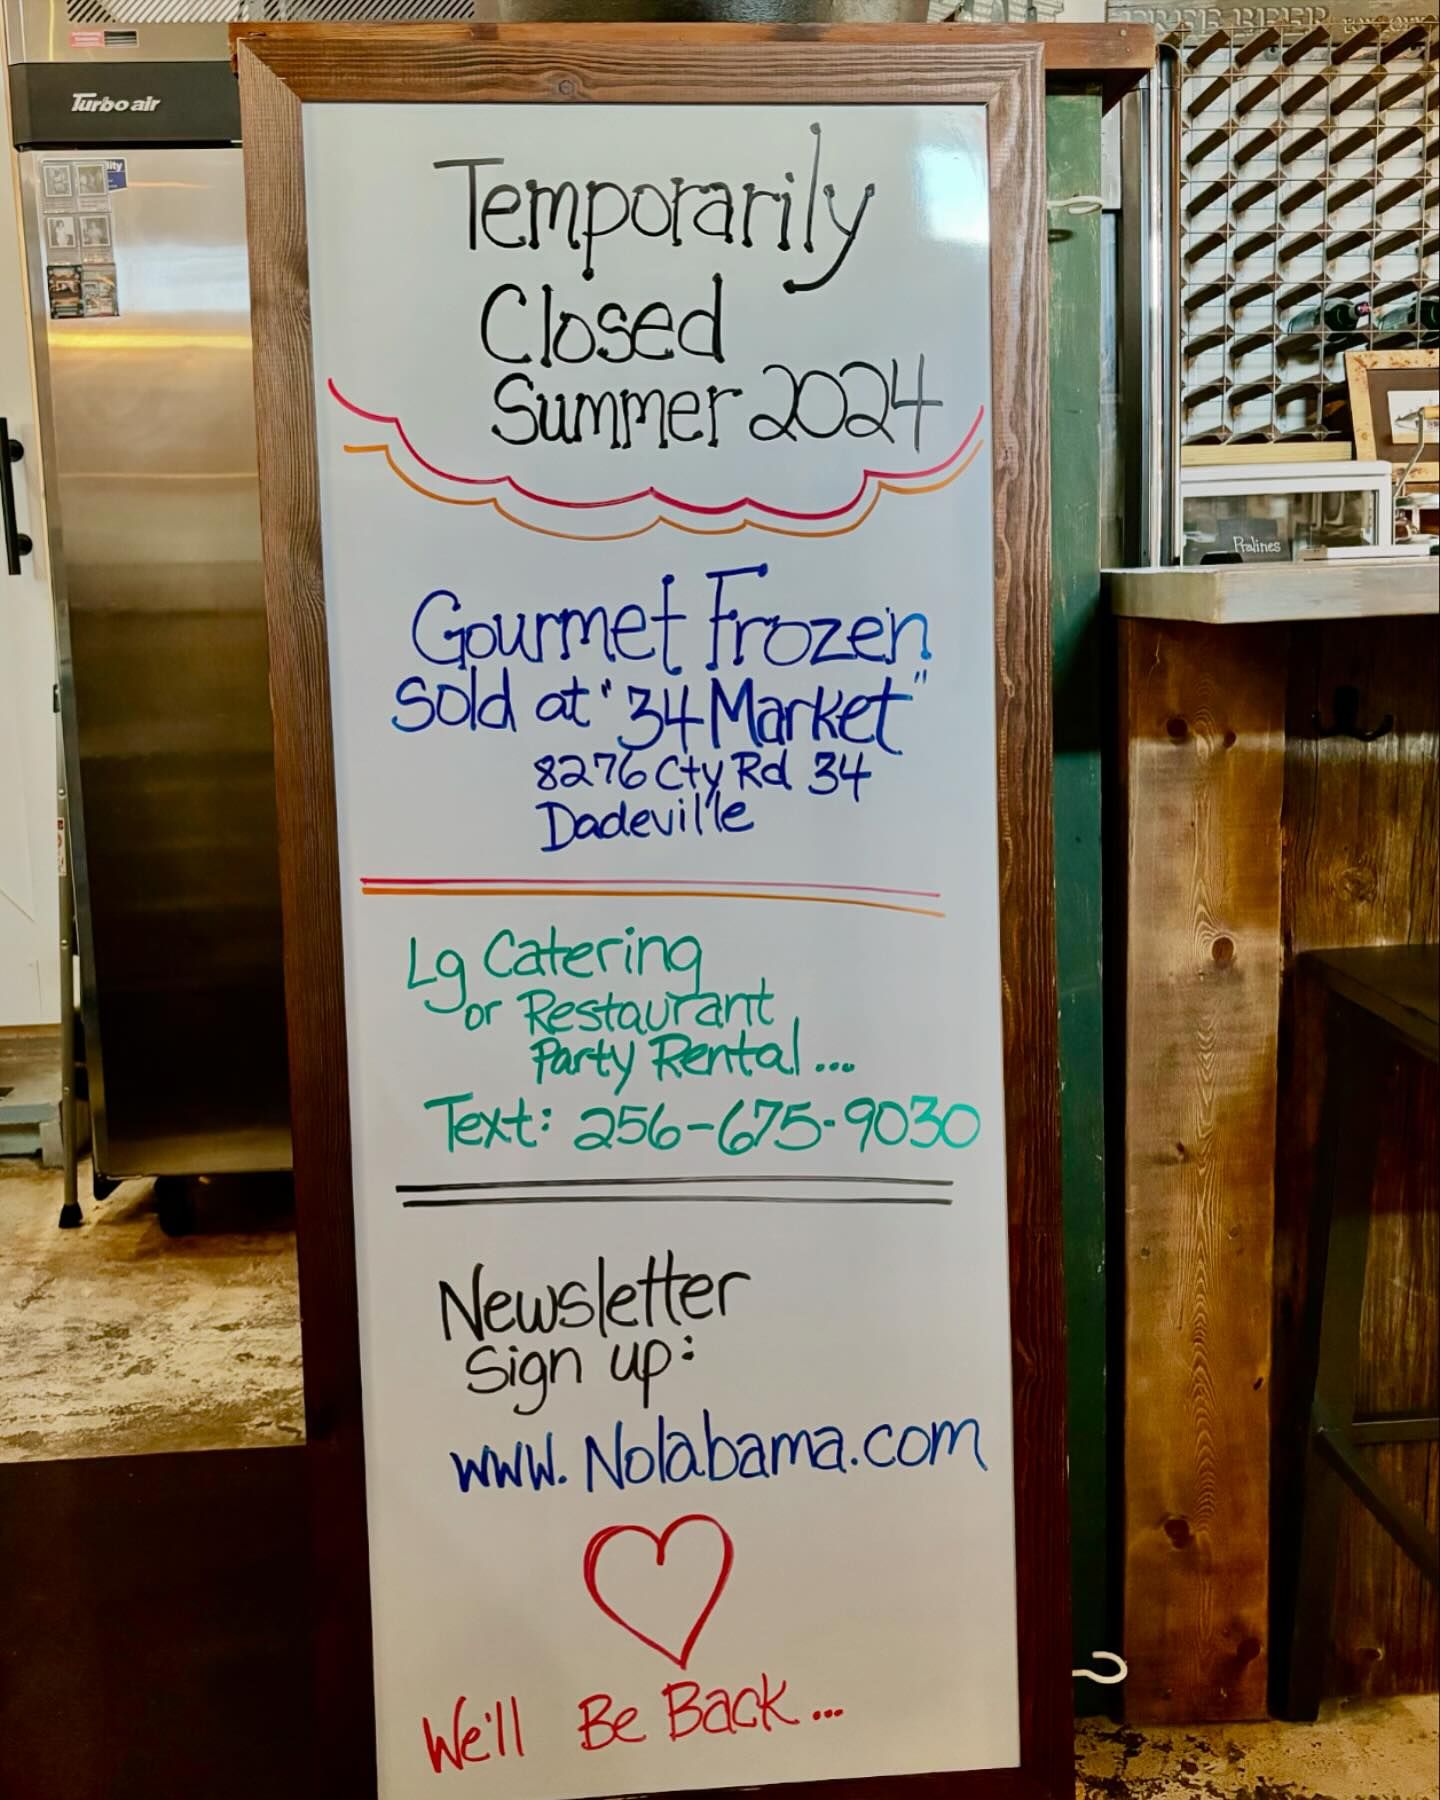 Turbo air
FREE BEER TOMORROW
Temporarily
Closed
Summer 2024
Gourmet Frozen
sold at "34 Market"
8276 Cty Rd 34
Dadeville
Pralines
Lg Catering
or Restaurant
Party Rental...
Text: 256-675-9030
Newsletter
Sign up:
www.Nolabama.com
We'll Be Back...